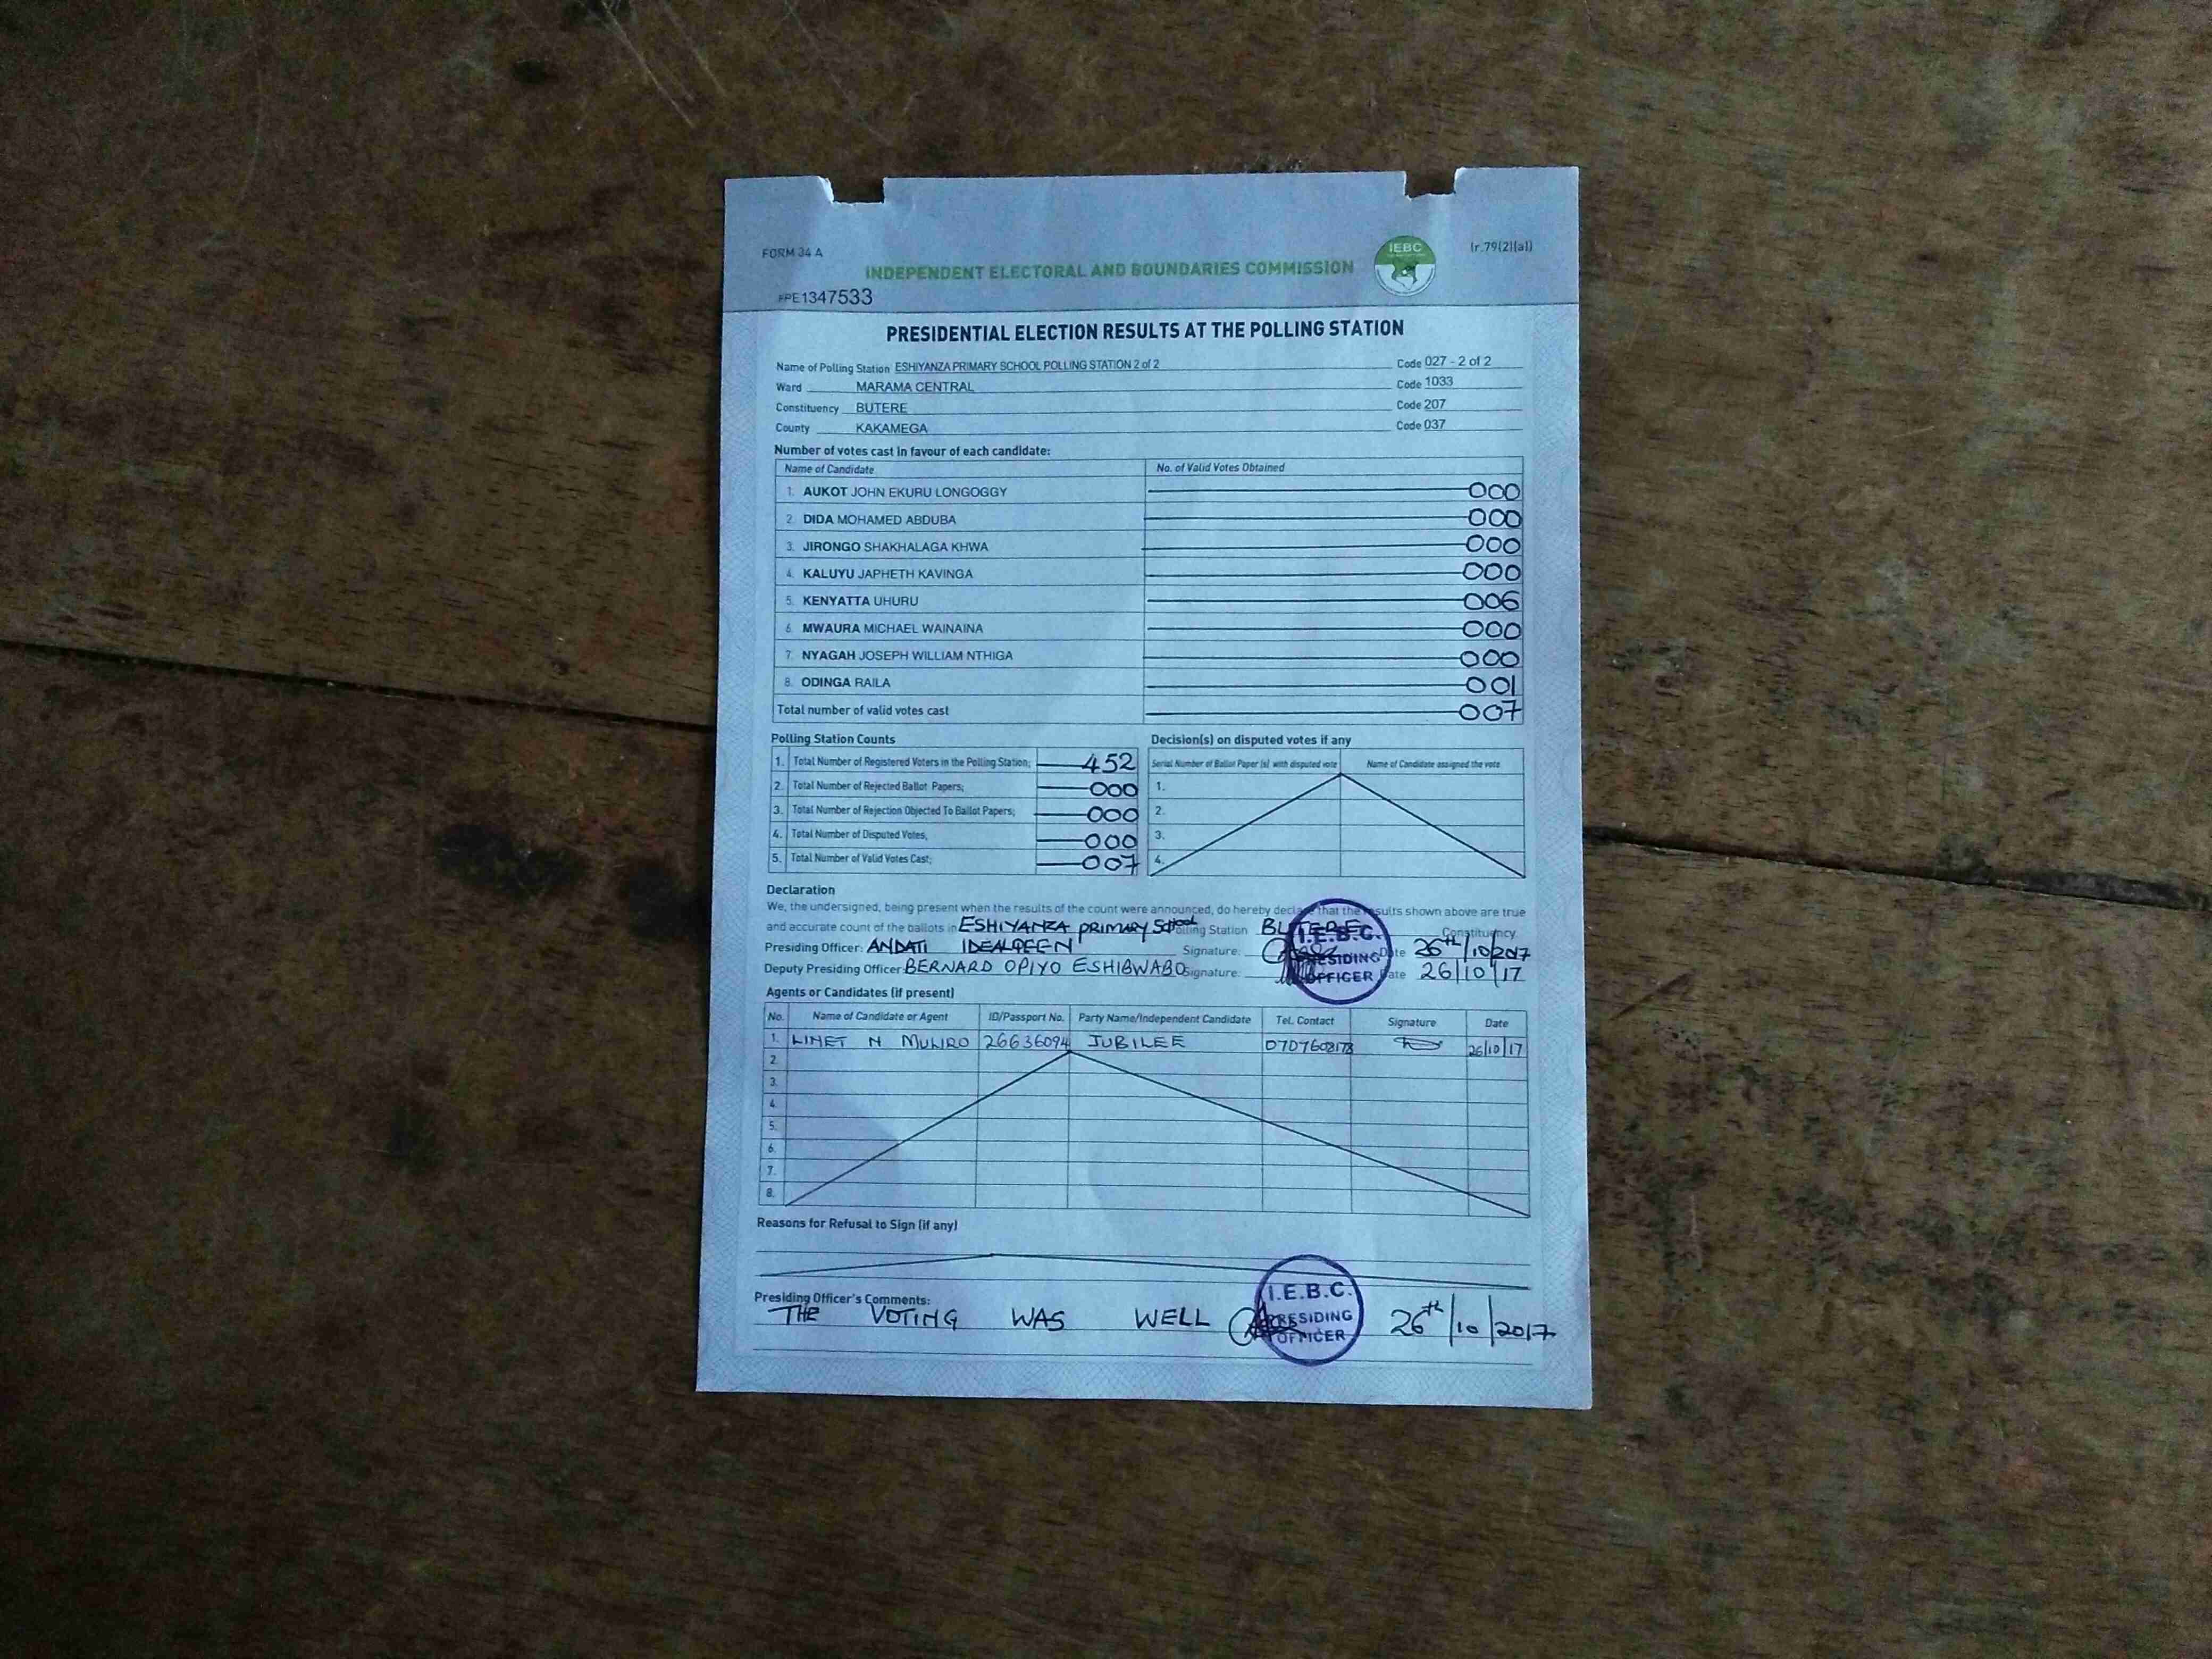 FORM 34 A
IEBC
(r.79(2)(a))
INDEPENDENT ELECTORAL AND BOUNDARIES COMMISSION
PPE1347533
PRESIDENTIAL ELECTION RESULTS AT THE POLLING STATION
Name of Polling Station ESHIYANZA PRIMARY SCHOOL POLLING STATION 2 of 2 Code 027 - 2 of 2
Ward MARAMA CENTRAL Code 1033
Constituency BUTERE Code 207
County KAKAMEGA Code 037
Number of votes cast in favour of each candidate:
Name of Candidate No. of Valid Votes Obtained
1. AUKOT JOHN EKURU LONGOGGY 000
2. DIDA MOHAMED ABDUBA 000
3. JIRONGO SHAKHALAGA KHWA 000
4. KALUYU JAPHETH KAVINGA 000
5. KENYATTA UHURU 006
6. MWAURA MICHAEL WAINAINA 000
7. NYAGAH JOSEPH WILLIAM NTHIGA 000
8. ODINGA RAILA 001
Total number of valid votes cast 007
Polling Station Counts Decision(s) on disputed votes if any
Serial Number of Ballot Paper (s) with disputed vote Name of Candidate assigned the vote
1. Total Number of Registered Voters in the Polling Station; 452 1.
2. Total Number of Rejected Ballot Papers; 000 2.
3. Total Number of Rejection Objected To Ballot Papers; 000 3.
4. Total Number of Disputed Votes; 000
5. Total Number of Valid Votes Cast; 007 4.
Declaration
We, the undersigned, being present when the results of the count were announced, do hereby declare that the results shown above are true
and accurate count of the ballots in ESHIYANZA PRIMARY School Polling Station BUTERE Constituency
Presiding Officer: ANDATI Signature: Date 26th/10/2017
Deputy Presiding Officer: BERNARD OPIYO ESHIBWABO Signature: Date 26/10/17
I.E.B.C. PRESIDING OFFICER
Agents or Candidates (if present)
No. Name of Candidate or Agent ID/Passport No. Party Name/Independent Candidate Tel. Contact Signature Date
1. LINET N MULIRO 26636094 JUBILEE 26/10/17
2.
3.
4.
5.
6.
7.
8.
Reasons for Refusal to Sign (if any)
Presiding Officer's Comments:
THE VOTING WAS WELL 26th/10/2017
I.E.B.C. PRESIDING OFFICER